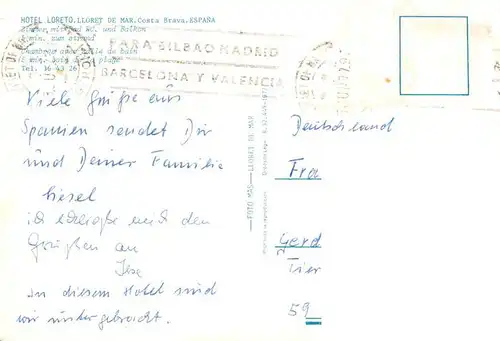 HOTEL LORETO.LLORET DE MAR.Costa Brava.ESPAÑA
Zimmer mit Bad WC. und Balkon
min. zum strand
Chambres avec salle de bain
min. plage
Tel. 36 43 26
PARA BILBAO MADRID
BARCELONA Y VALENCIA
Viele Grüße aus
Spanien sendet Dir
und Deiner Familie
Liesel
ich schließe mich den
Grüßen an
Ilse
In diesem Hotel sind
wir untergebracht.
FOTO MAR — LLORET DE MAR
Deutschland
Fra
Gerd
Tier
59